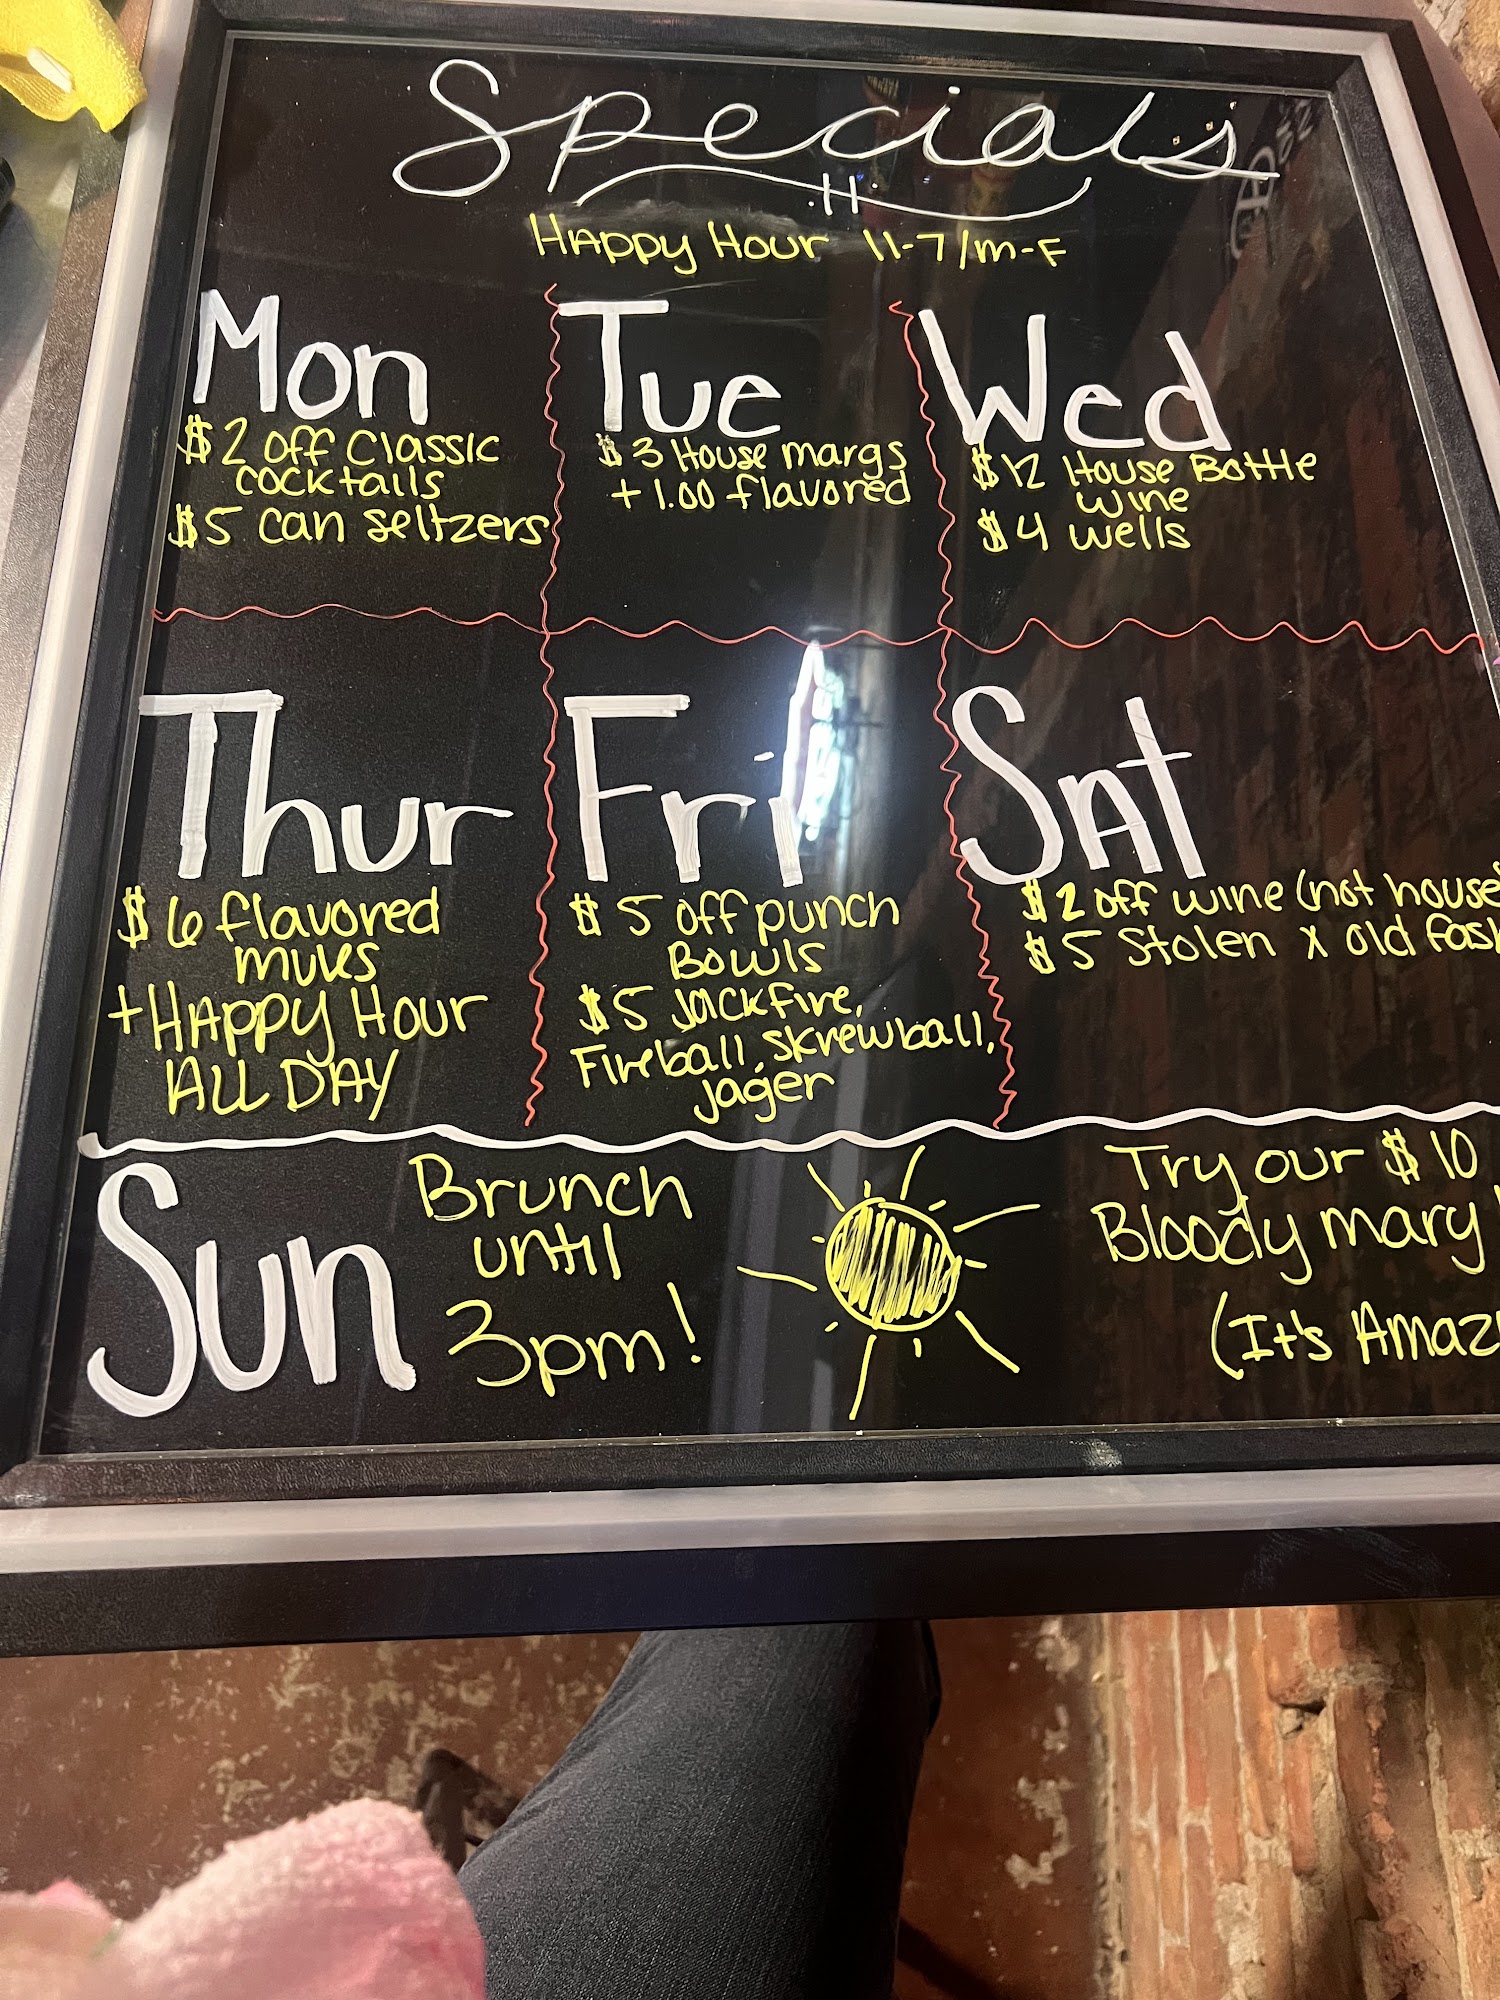 Specials
Happy Hour 11-7/m-F
Mon
$2 off Classic
cocktails
$5 can seltzers
Tue
$3 House margs
+ 1.00 flavored
Wed
$12 House Bottle
wine
$4 wells
Thur
$6 flavored
mules
+ Happy Hour
ALL DAY
Fri
$5 off punch
Bowls
$5 Jackfire,
Fireball, Skrewball,
Jager
Sat
$2 off wine (not house)
$5 Stolen X old
Sun
Brunch
until
3pm!
Try our $10
Bloody mary
(It's